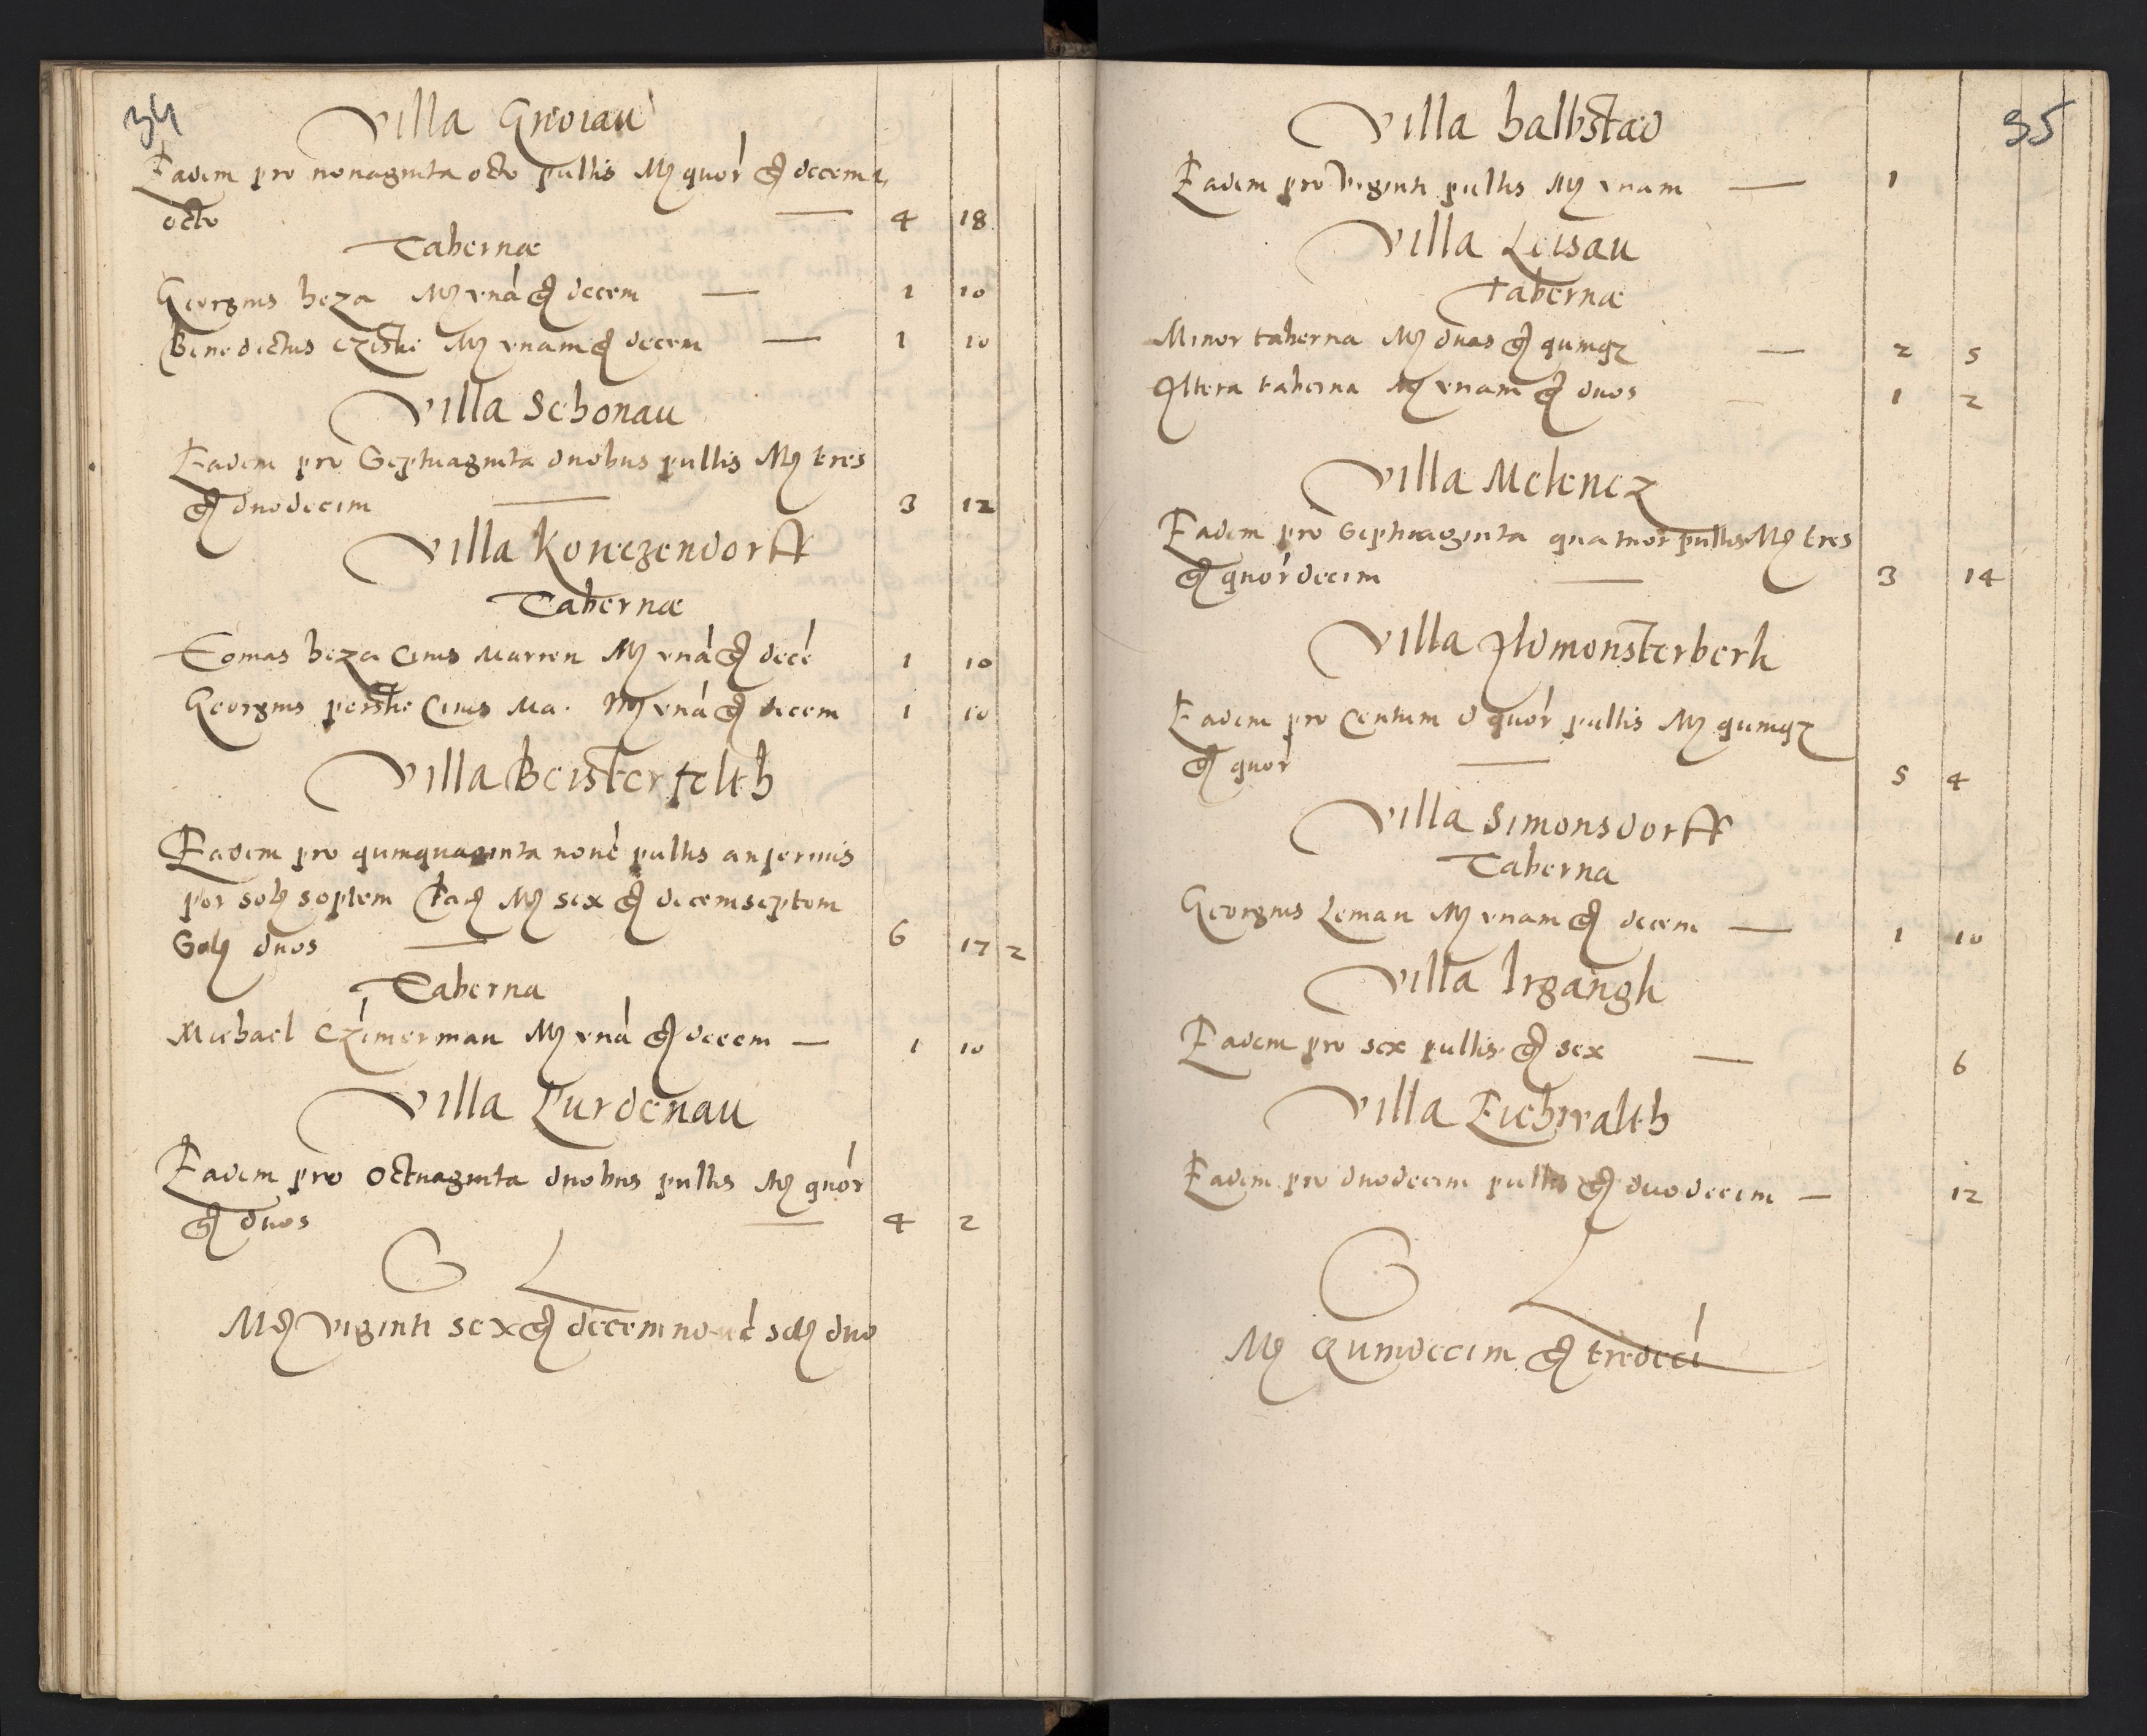 34
Villa Gnoiau
Eadem pro nonaginta octo pullis Mꝶ quor gꝶ decem
octo — 4 18
Tabernæ
Georgius heza Mꝶ vná gꝶ decem — 1 10
Benedictus Cziske Mꝶ vnam gꝶ decem — 1 10
Villa Schonau
Eadem pro Septuaginta duobus pullis Mꝶ tres
gꝶ duodecim — 3 12
Villa Koneczendorff
Tabernæ
Tomas heza Ciuis Marien Mꝶ vná gꝶ decé 1 10
Georgius peske Ciuis Ma. Mꝶ vná gꝶ decem 1 10
Villa Beisterfelth
Eadem pro quinquaginta noué pullis anserinis
per solꝶ septem Facꝶ Mꝶ sex gꝶ decemseptem
Solꝶ duos — 6 17 2
Taberna
Michael Czimerman Mꝶ vná gꝶ decem — 1 10
Villa Purdenau
Eadem pro octuaginta duobus pullis Mꝶ quor
gꝶ duos — 4 2
S L
Mꝶ viginti sex gꝶ decemnoué solꝶ duo
35
Villa halbstad
Eadem pro Viginti pullis Mꝶ vnam — 1
Villa Leisau
Tabernæ
Minor taberna Mꝶ duas gꝶ quinqꝫ — 2 5
Altera taberna Mꝶ vnam gꝶ duos 1 2
Villa Melencz
Eadem pro Septuaginta quatuor pullis Mꝶ tres
gꝶ quordecim — 3 14
Villa Aldmonsterberk
Eadem pro Centum & quor pullis Mꝶ quinqꝫ
gꝶ quor — 5 4
Villa Simonsdorff
Taberna
Georgius Leman Mꝶ vnam gꝶ decem — 1 10
Villa Irgangk
Eadem pro sex pullis gꝶ sex — 6
Villa Eichwalth
Eadem pro duodecim pullis gꝶ duodecim — 12
S L
Mꝶ Quindecim gꝶ tredecí